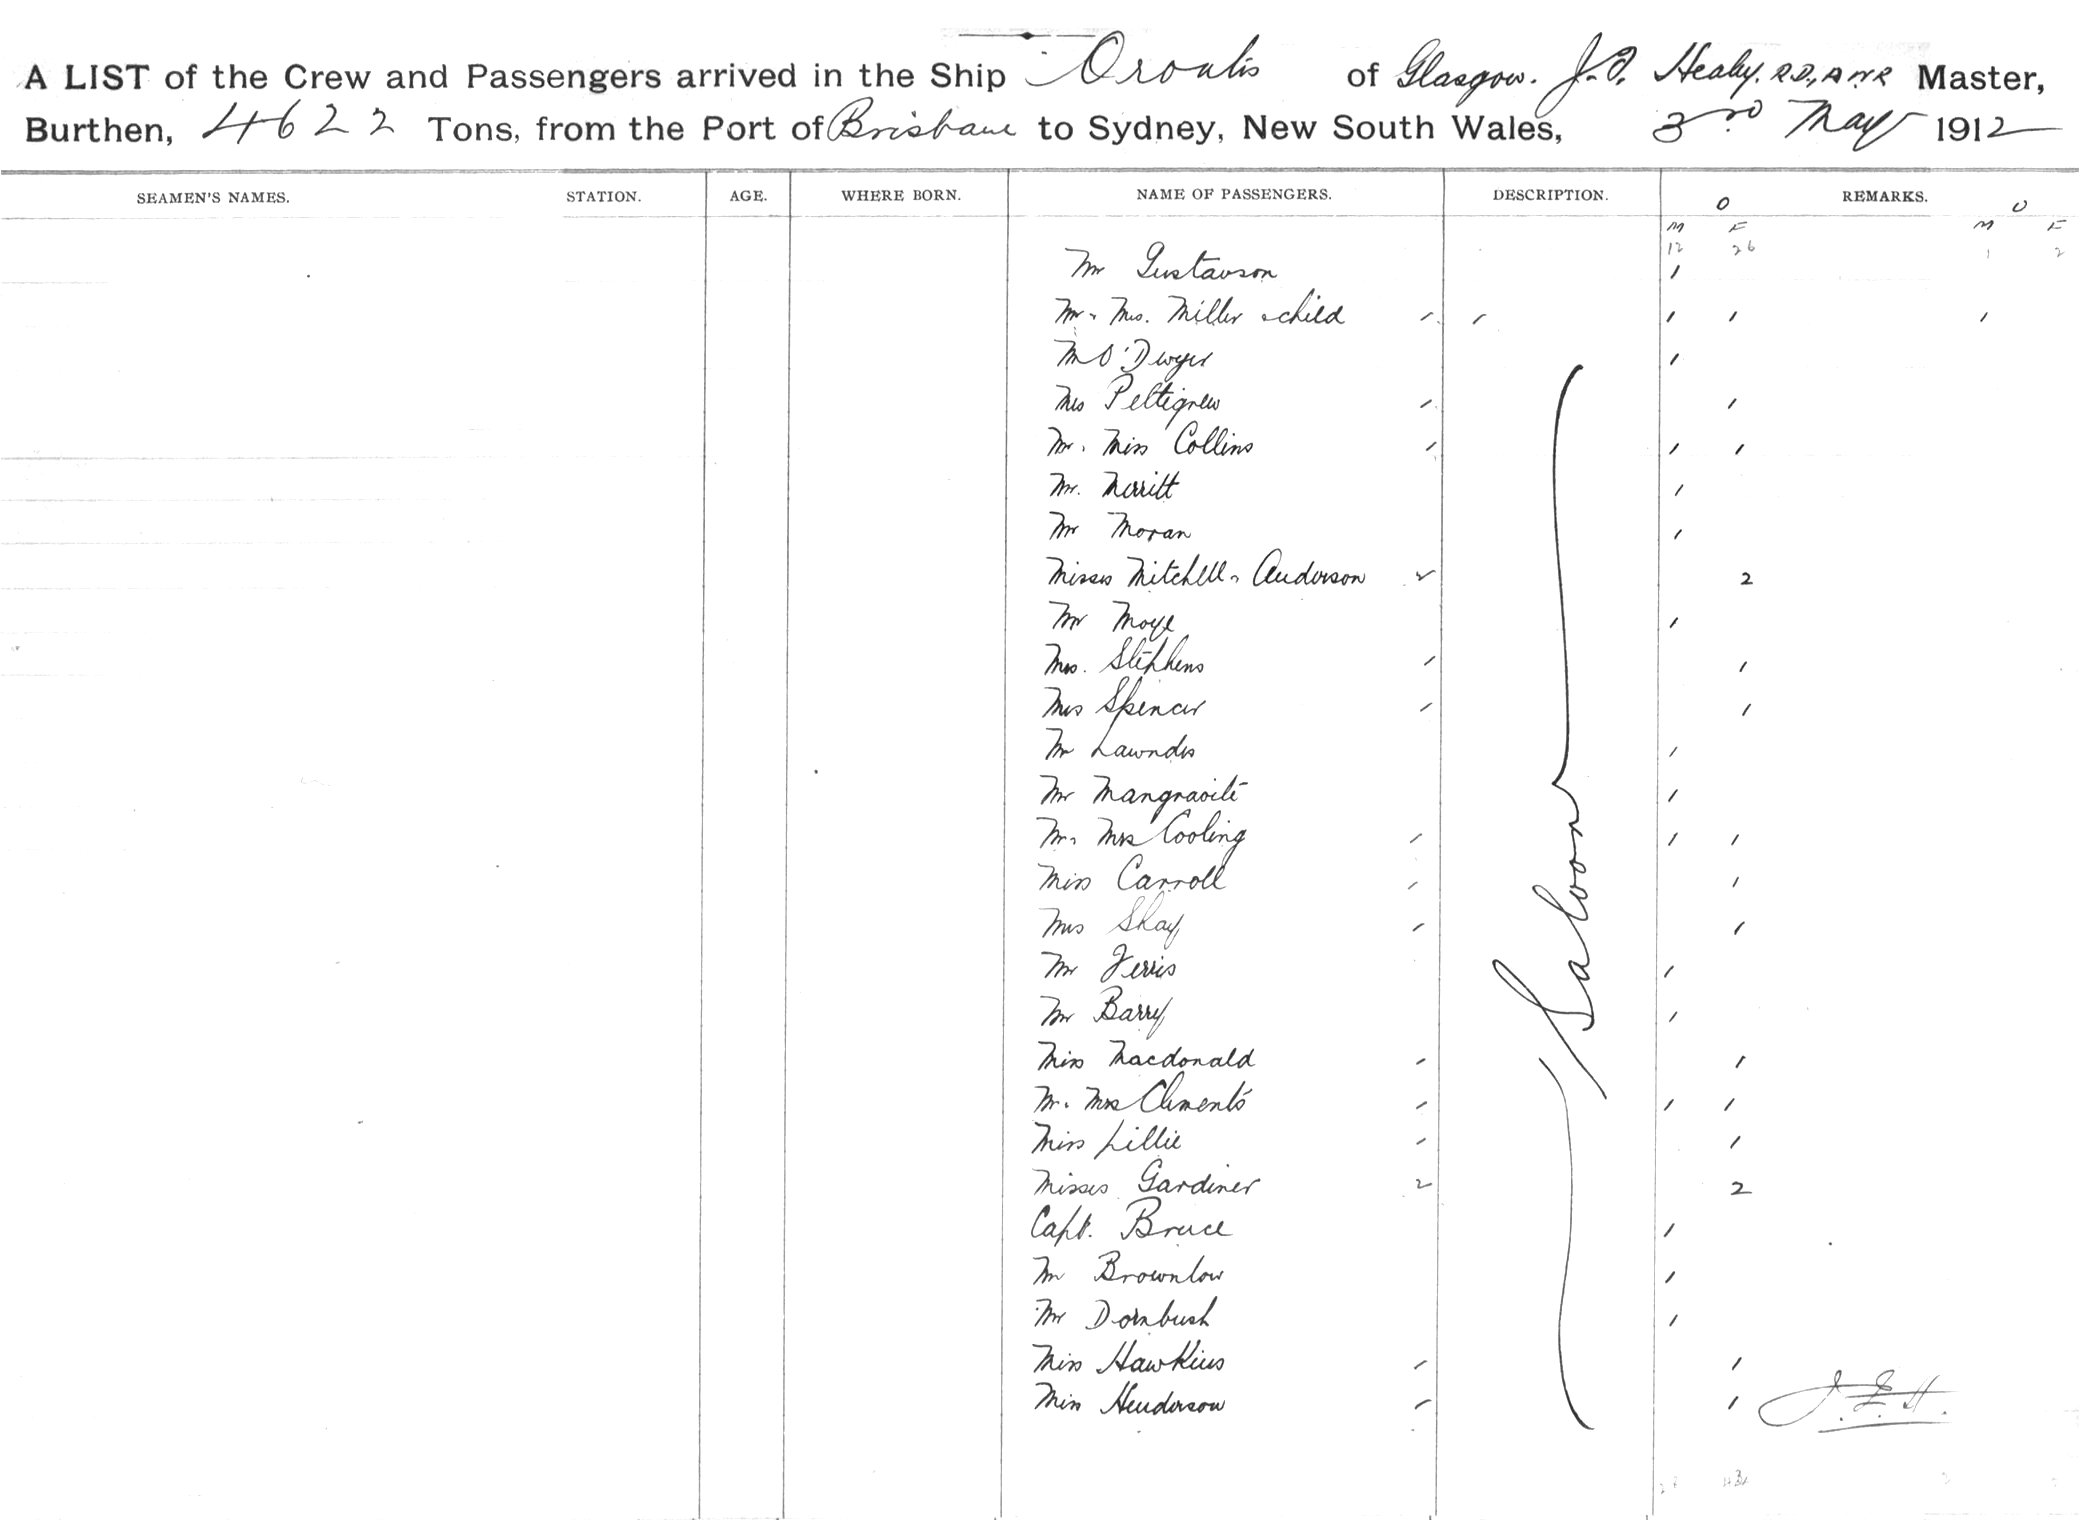 A LIST of the Crew and Passengers arrived in the Ship of Glasgow. J. Healy. R.D., R.N.R Master,
Burthen, 4622 Tons, from the Port of Brisbane to Sydney, New South Wales, 3rd May 1912
SEAMEN'S NAMES. STATION. AGE. WHERE BORN. NAME OF PASSENGERS. DESCRIPTION. O REMARKS. O
M F M F
12 26 1 2
Mr Gustavson 1
Mr & Mrs. Miller & child 1 1 1 1 1
Mr O'Dwyer 1
Mrs Peltigrew 1 1
Mr. Miss Collins 1 1 1
Mr. Merritt 1
Mr Moran 1
Misses Mitchell & Anderson 2 2
Mr Moye 1
Mrs. Stephens 1 1
Mrs Spencer 1 1
Mr Lawndes 1
Mr Mangraviti 1
Mr & Mrs Cooling 1 1 1
Miss Carroll 1 1
Mrs Shay 1 1
Mr Ferris 1
Mr Barry 1
Miss Macdonald 1 1
Mr. Mrs Clements 1 1 1
Miss Lillie 1 1
Misses Gardiner 2 2
Capt. Bruce 1
Mr Brownlow 1
Mr Dornbush 1
Miss Hawkins 1 1
Miss Henderson 1 1
Saloon
J.E.H.